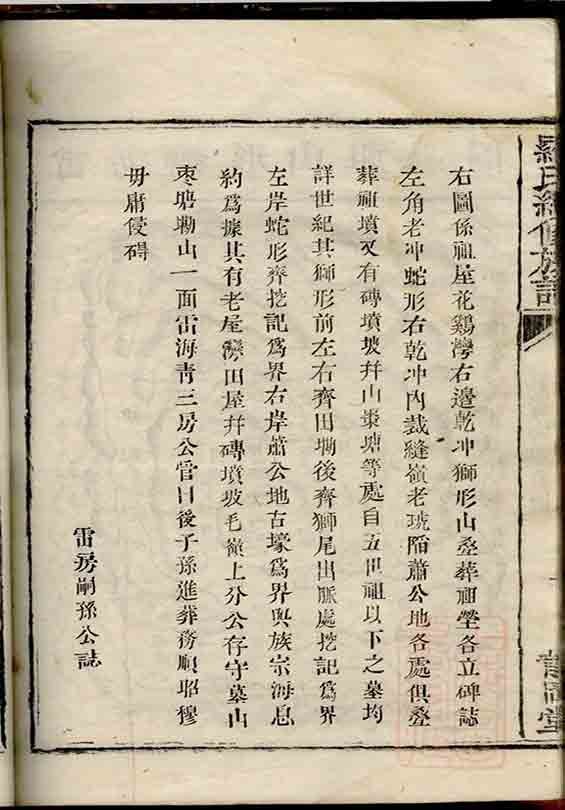 羅氏續修族譜
右圖係祖屋花鷄灣右邊乾冲獅形山叠葬祖塋各立碑誌
左角老冲蛇形右乾冲內裁縫嶺老琥陷蕭公地各處俱叠
葬祖墳又有磚墳坡并山棗塘等處自五世祖以下之墓均
詳世紀其獅形前左右齊田墈後齊獅尾出脈處挖記爲界
左岸蛇形齊挖記爲界右岸蕭公地古壕爲界與族宗海息
約爲據其有老屋灣田屋并磚墳坡毛嶺上分公存守墓山
棗塘墈山一面雷海靑三房公管日後子孫進葬務順昭穆
毋庸侵碍
雷房嗣孫公誌